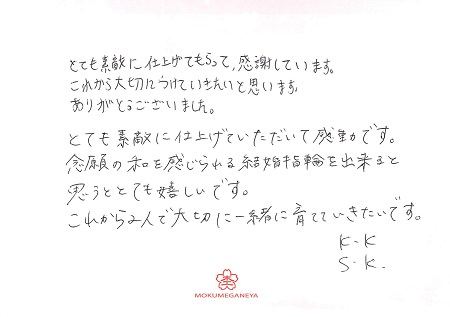 とても素敵に仕上げてもらって、感謝しています。
これから大切につけていきたいと思います。
ありがとうございました。
とても素敵に仕上げていただいて感動です。
念願の和を感じられる結婚指輪を出来ると
思うととても嬉しいです。
これから2人で大切に一緒に育てていきたいです。
K.K
S.K.
MOKUMEGANEYA